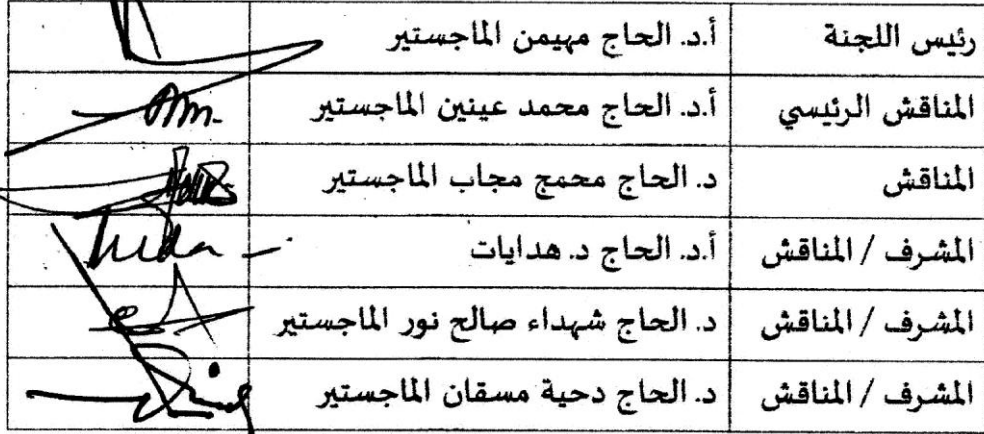 رئيس اللجنة أ.د. الحاج مهيمن الماجستير
المناقش الرئيسي أ.د. الحاج محمد عينين الماجستير
المناقش د. الحاج محمج مجاب الماجستير
المشرف / المناقش أ.د. الحاج د. هدايات
المشرف / المناقش د. الحاج شهداء صالح نور الماجستير
المشرف / المناقش د. الحاج دحية مسقان الماجستير